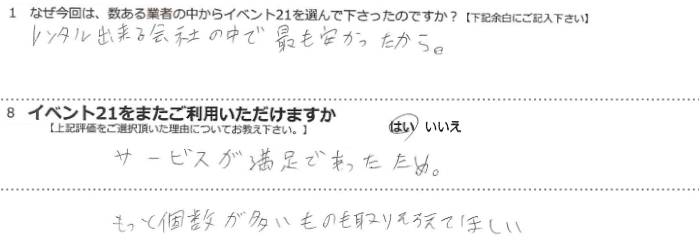 1 なぜ今回は、数ある業者の中からイベント21を選んで下さったのですか？【下記余白にご記入下さい】
レンタル出来る会社の中で最も安かったから。
8 イベント21をまたご利用いただけますか
【上記評価をご選択頂いた理由についてお教え下さい。】
はい いいえ
サービスが満足であったため。
もっと個数が多いものも取りそろえてほしい